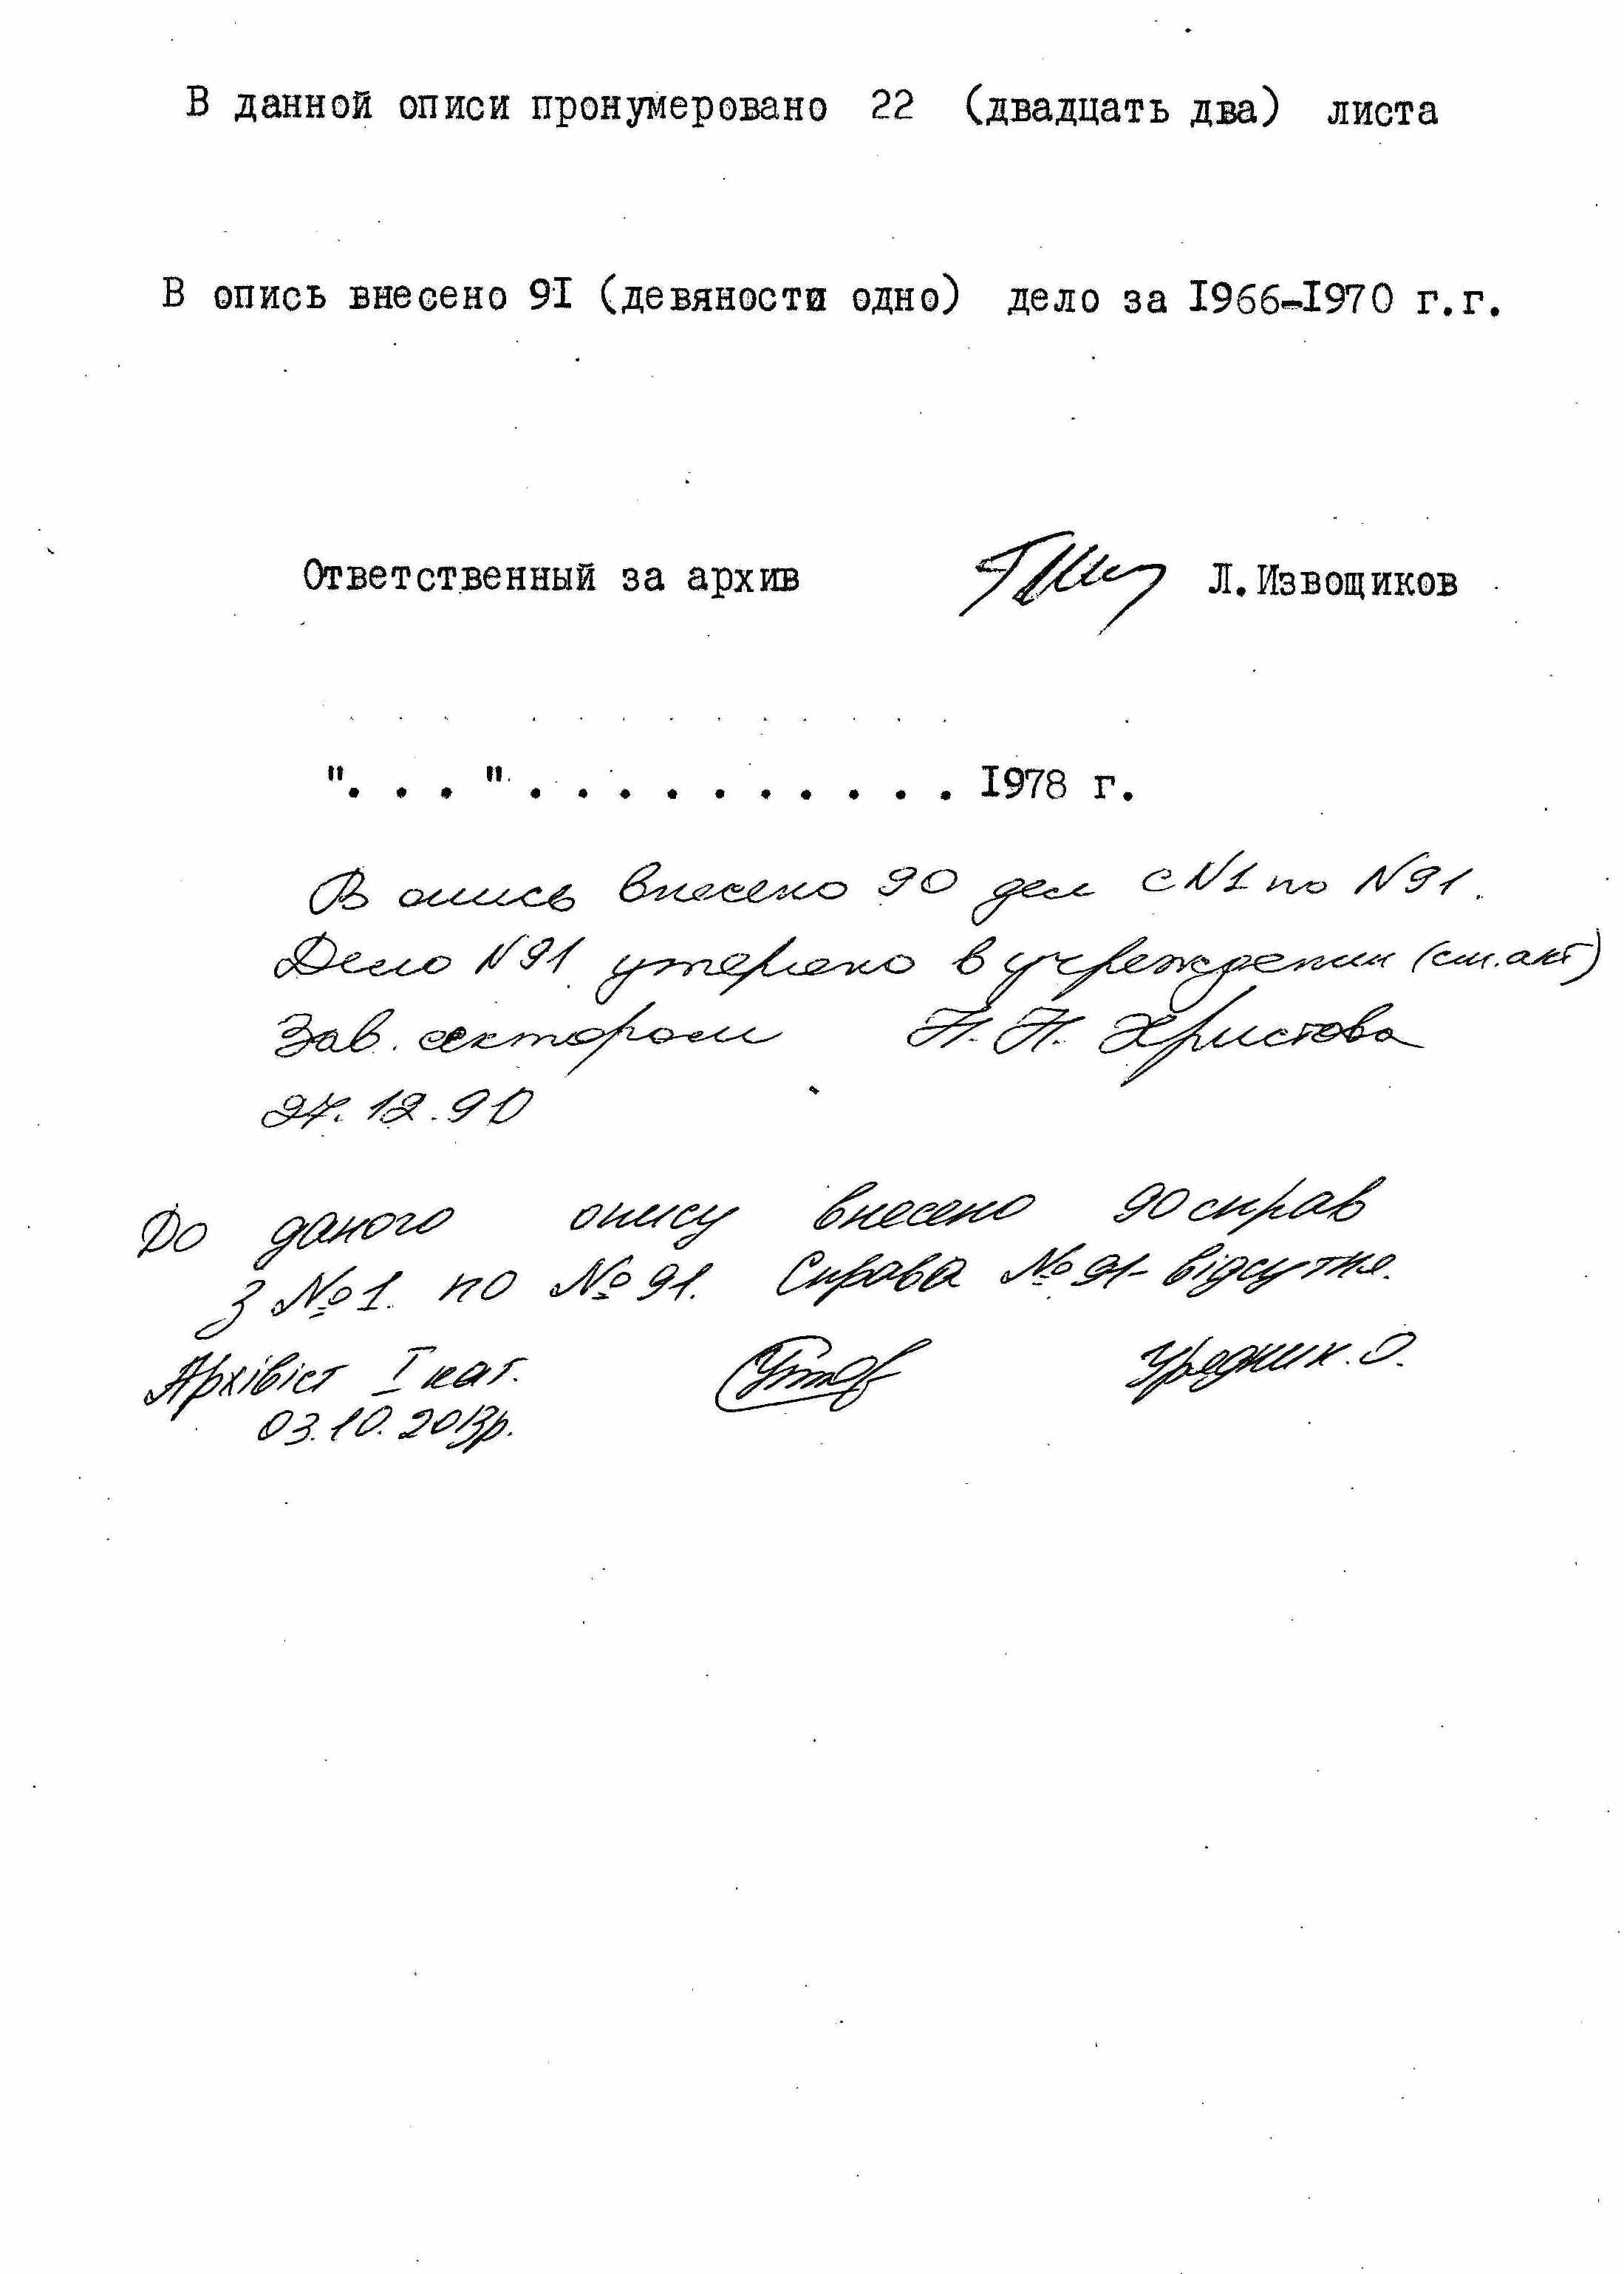 В данной описи пронумеровано 22 (двадцать два) листа
В опись внесено 9I (девяности одно) дело за I966-I970 г.г.
Ответственный за архив Л.Извощиков
". . . ". . . . . . . . . . I978 г.
В опись внесено 90 дел с N1 по N91.
Дело N91 утеряно в учреждении (см. акт)
Зав. сектором Н.Н. Христова
27.12.90
До даного опису внесено 90 справ
з №1. по №91. Справа №91- відсутня.
Архівіст I кат. Урядник.О.
03.10.2013р.